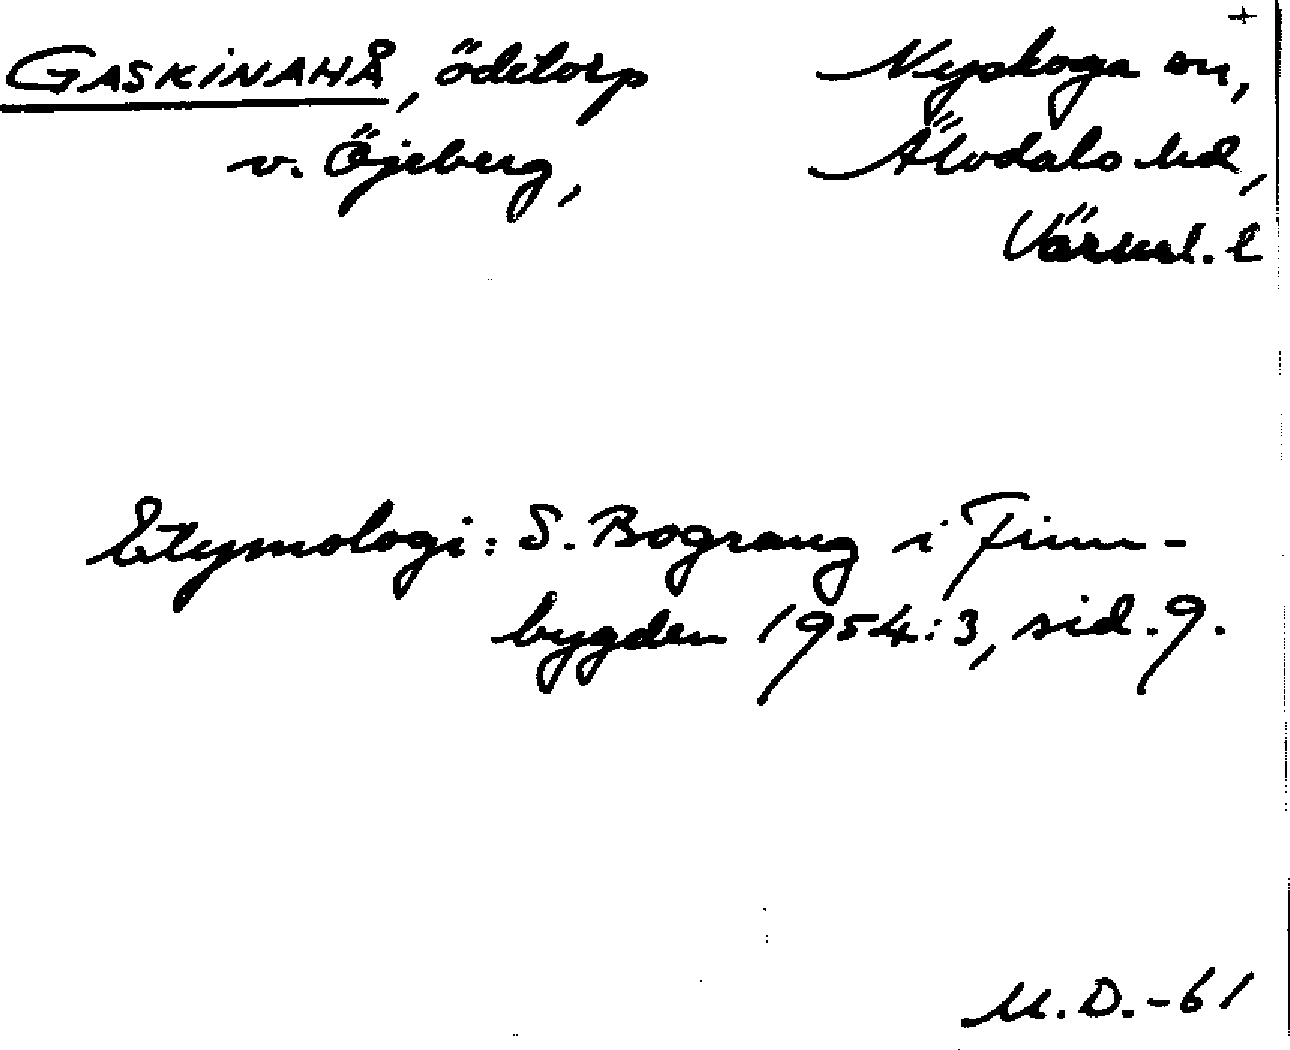 +
GASKINAHÅ, ödetorp
v. Öjeberg,
Nyskoga sn,
Älvdals hd,
Värml. l
Etymologi: S. Bograng i Finn-
bygden 1954:3, sid. 9.
M.D.-61